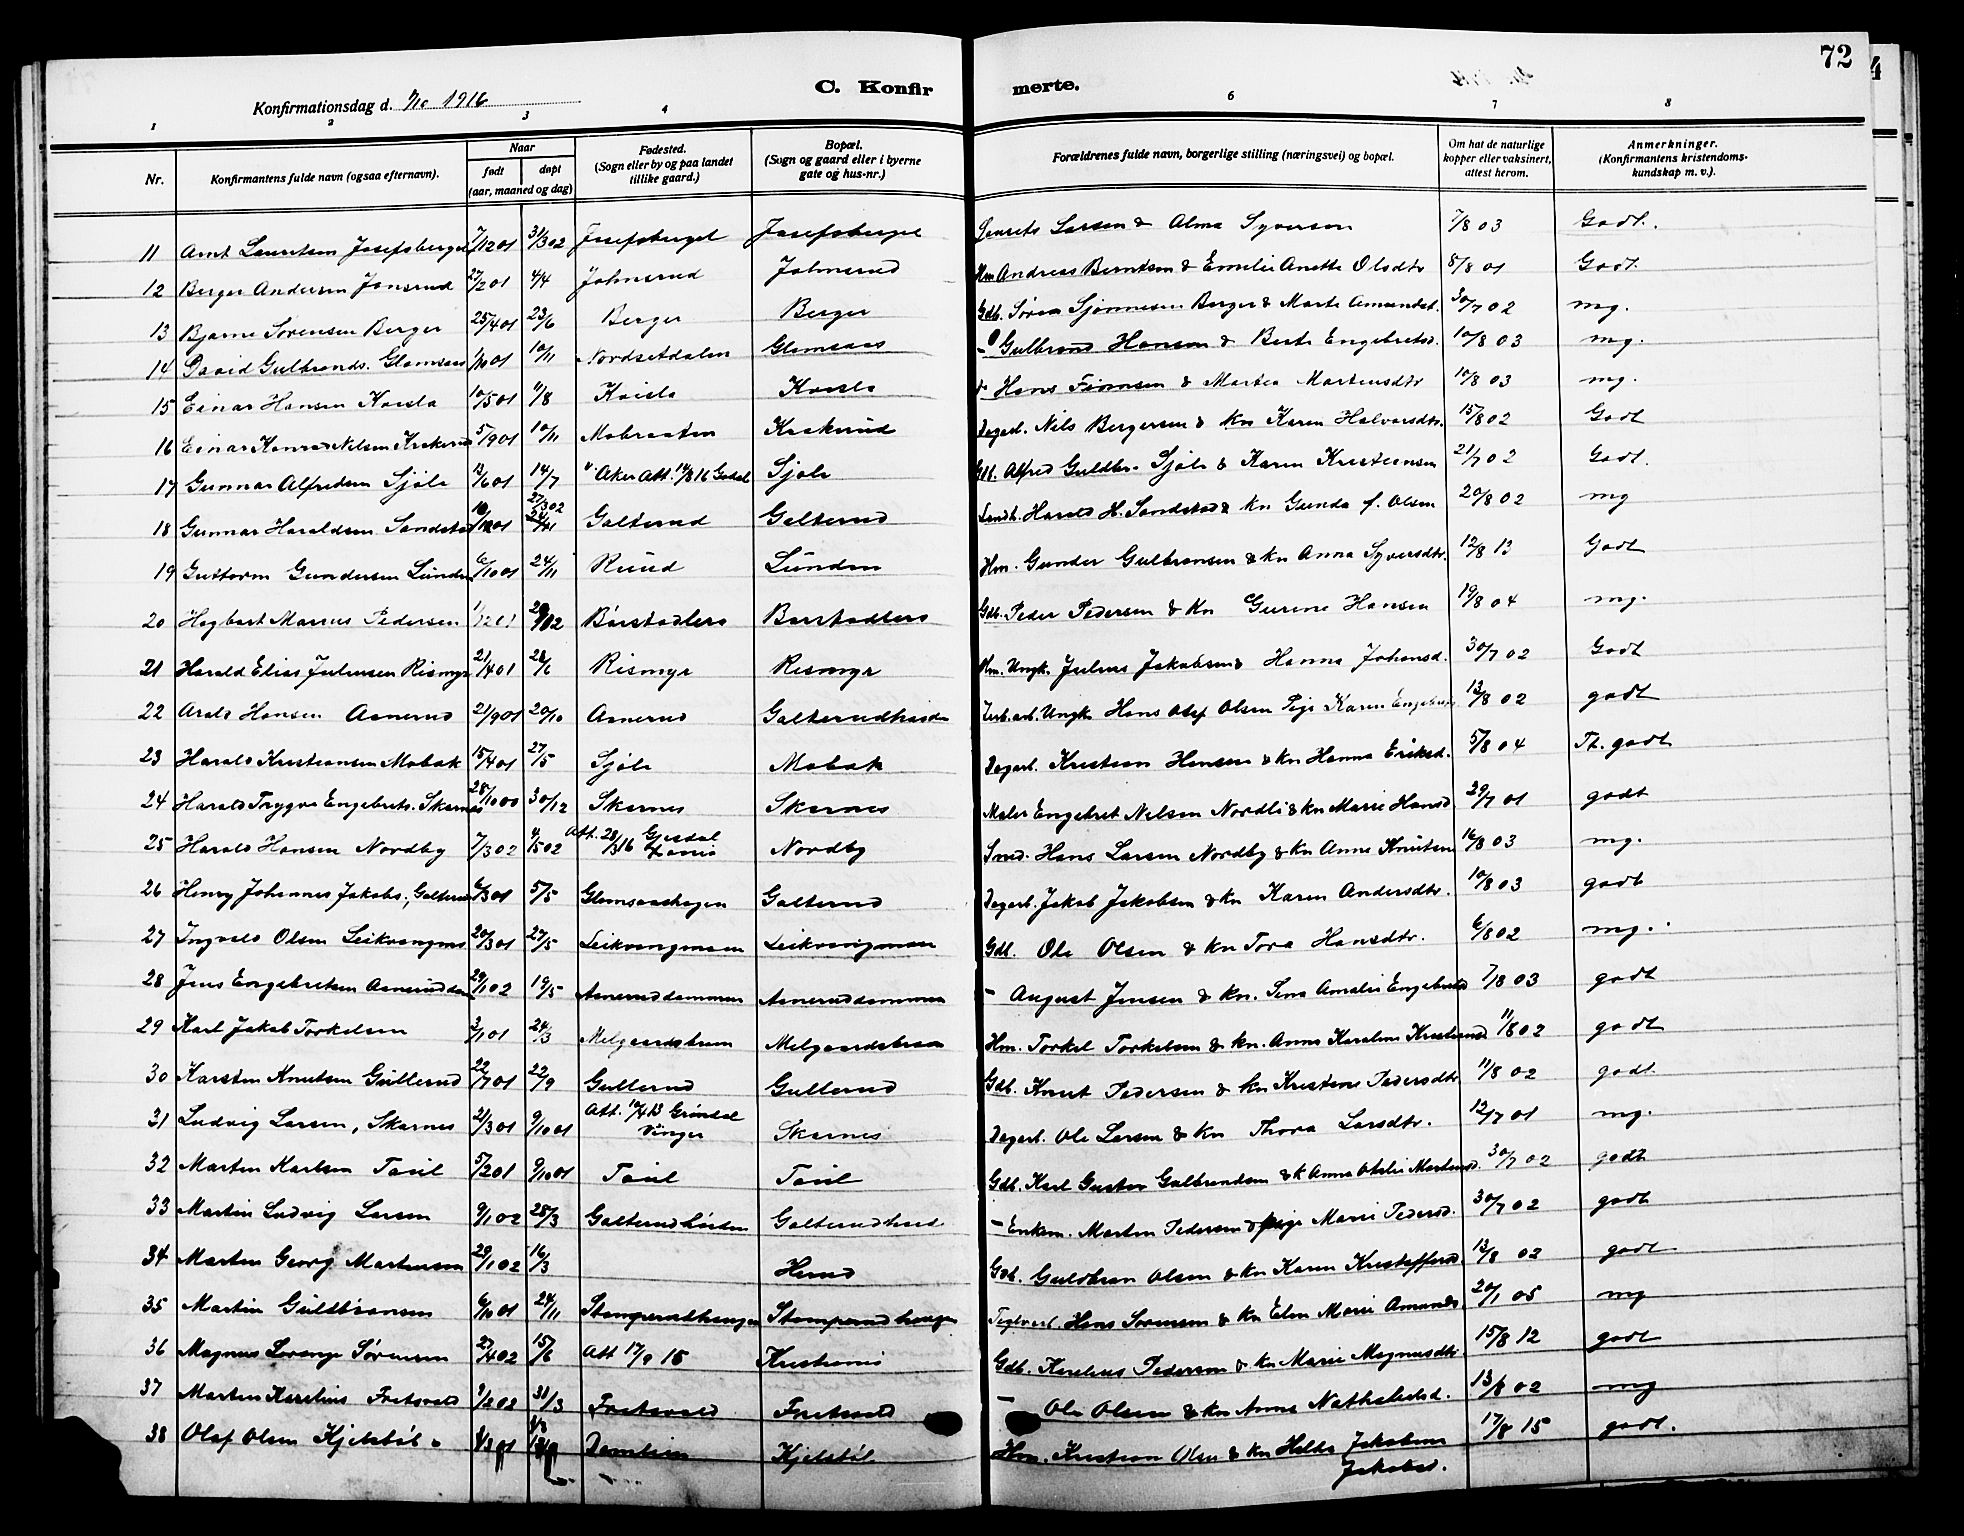 72
Konfirmationsdag d. 1/10 1916
C. Konfirmerte.
1 2 3 4 6 7 8
Nr.
Konfirmantens fulde navn (ogsaa efternavn).
Naar
født døpt
(aar, maaned og dag)
Fødested.
(Sogn eller by og paa landet
tillike gaard.)
Bopæl.
(Sogn og gaard eller i byerne
gate og hus-nr.)
Forældrenes fulde navn, borgerlige stilling (næringsvei) og bopæl.
Om hat de naturlige
kopper eller vaksinert,
attest herom.
Anmerkninger.
(Konfirmantens kristendoms-
kundskap m. v.).
11 Arnt Lauritsen Josefsberget 7/12 01 31/3 02 Josefsberget Josefsberget Laurits Larsen & Alma Syversen 7/8 03 Godt.
12 Berger Andersen Jonsrud 27/2 01 4/4 Johnsrud Johnsrud Hm Andreas Berntsen & Emilie Anette Olsdtr 8/8 01 Godt
13 Bjarne Sørensen Berger 25/4 01 23/6 Berger Berger Gdb. Søren Berger & Marte Amundsd. 30/7 02 mg.
14 David Gulbrands. Glomsaas 1/10 01 10/11 Nordsetdalen Glomsaas Gulbrand Hansen & Berte Engebretsd. 10/8 03 mg.
15 Einar Hansen Kvisla 10/5 01 11/8 Kvisla Kvisla Hans & Martea Martensdtr 10/8 03 mg.
16 Einar Konrad Nilsen Krakerud 5/9 01 10/11 Mobraaten Krakerud Dagarb. Nils Bergersen & kn Karen Halvorsdtr. 15/8 02 Godt
17 Gunnar Alfredsen Sjøli 13/6 01 14/7 V. Aker Att. Sjøli Alfred Guldbr. Sjøli & Karen Kristiansen 21/7 02 Godt.
18 Gunnar Haraldsen Sandstad 27/3 02 Galterud Galterud Landh. Harald H. Sandstad & kn Gunda f. Olsen 20/8 02 mg
19 Guttorm Gundersen Lunden 6/10 01 24/11 Ruud Lunden Hm. Gunder Gulbransen & kn Anna Syversdtr. 12/8 13 Godt
20 Hagbart Marius Pedersen 1/12 01 Børstadlera Børstadlera Gdb. Peder Pedersen & kn Gurine Hansen 19/8 04 mg.
21 Harald Elias Juliussen Rismyr 21/4 01 28/6 Rismyr Rismyr Hm. Ungk. Julius Jakobsen & Hanna Johansd. 30/7 02 Godt
22 Arald Hansen Asnerud 21/9 01 20/10 Asnerud Galterud Ungk Hans Olaf Olsen Pige Karen 13/8 02 godt
23 Harald Kristiansen Mobak 15/4 01 27/5 Sjøli Mobak Dagarb. Kristian Hansen & kn Hanna Eriksd. 5/8 04 T. godt
24 Harald Trygve Engebrets. Skarnes 28/10 00 30/12 Skarnes Skarnes Maler Engebret Nelsen Nordli & kn Marie Hansd. 29/7 01 godt
25 Harald Hansen Nordby 7/3 02 4/5 02 Att. 28/3 16 Nordby Smd. Hans Larsen Nordby & kn Anne Knutsen 16/8 03 mg.
26 Henry Johannes Jakobs. Galterud 6/3 01 5/5 Glomsaashagen Galterud Dagarb. Jakob Jakobsen & kn Karen Andersdtr. 10/8 03 godt
27 Ingvald Olsen Leikvangmoen 20/3 01 27/5 Leikvangmoen Leikvangmoen Gdb. Ole Olsen & kn Tora Hansdtr. 6/8 02 mg.
28 Jens Engebretsen Asneruddammen 29/1 02 19/5 Asneruddammen Asneruddammen - August Jensen & kn. Amalie 7/8 03 godt
29 Karl Jakob Torkelsen 3/1 01 24/3 Melgaardsbraaten Melgaardsbraaten Hm. Torkel Torkelsen & kn. Anna Karoline Kristiansd 11/8 02 godt
30 Karsten Knutsen Gullerud 22/7 01 22/9 Gullerud Gullerud Gdb. Knut Pedersen & kn Kristine Pedersdtr 11/8 02 godt.
31 Ludvig Larsen, Skarnes 21/3 01 9/10 01 Att. Grønsdal Vinger Skarnes Dagarb. Ole Larsen & kn Thora Larsdtr. 12/7 01 mg.
32 Marten Karlsen Taul 5/2 01 9/10 01 Taul Taul Gdb. Karl Gustav Gulbrandsen & k Anna Martensd. 30/7 02 godt
33 Martin Ludvig Larsen 9/1 02 28/3 Galterud Galterud - Enkem. Morten Pedersen & pige Marie Pedersd. 30/7 02 godt
34 Marten Georg Martinsen 29/1 02 16/3 Gdb. Guldbran Olsen & kn Karen Kristoffersd. 13/8 02 godt
35 Martin Guldbransen 6/10 01 24/11 Stomperudhaugen Stomperudhaugen Hans Sørensen & kn Elen Marie Amunds. 20/1 05 mg
36 Magnus Lorang Sørensen 27/4 02 15/6 Att 17/9 15 Kristiania Gdb. Karelius Pedersen & kn Marie Magnusdtr 15/8 12 godt
37 Marten Karelius Fretsvold 9/2 02 31/3 Fretsvold Fretsvold - Ole Olsen & kn Anna 13/8 02 mg
38 Olaf Olsen Kjelstøl Kjelstøl Hm. Kristian Olsen & kn Helda Jakobsen 17/8 15 godt.
Jakobsd.